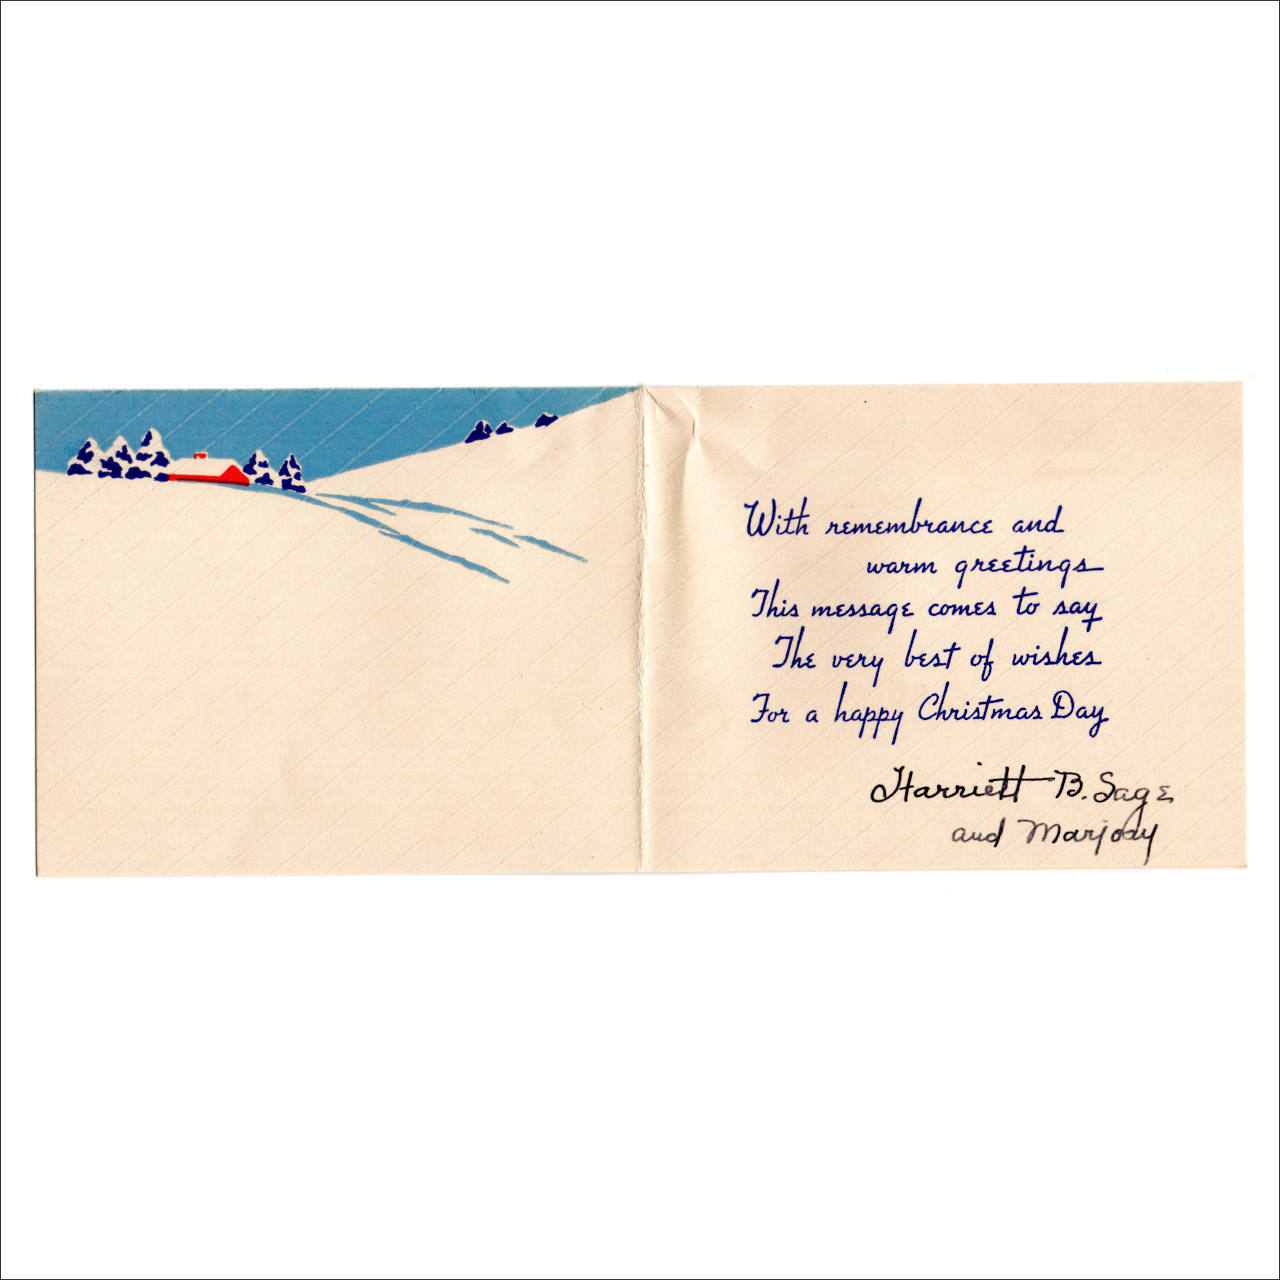 With remembrance and
warm greetings
This message comes to say
The very best of wishes
For a happy Christmas Day
Harriett B. Sage
and Marjory